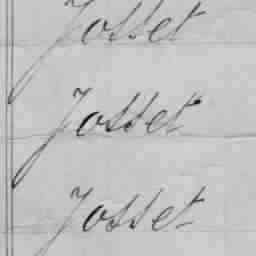 Josset
Josset
Josset